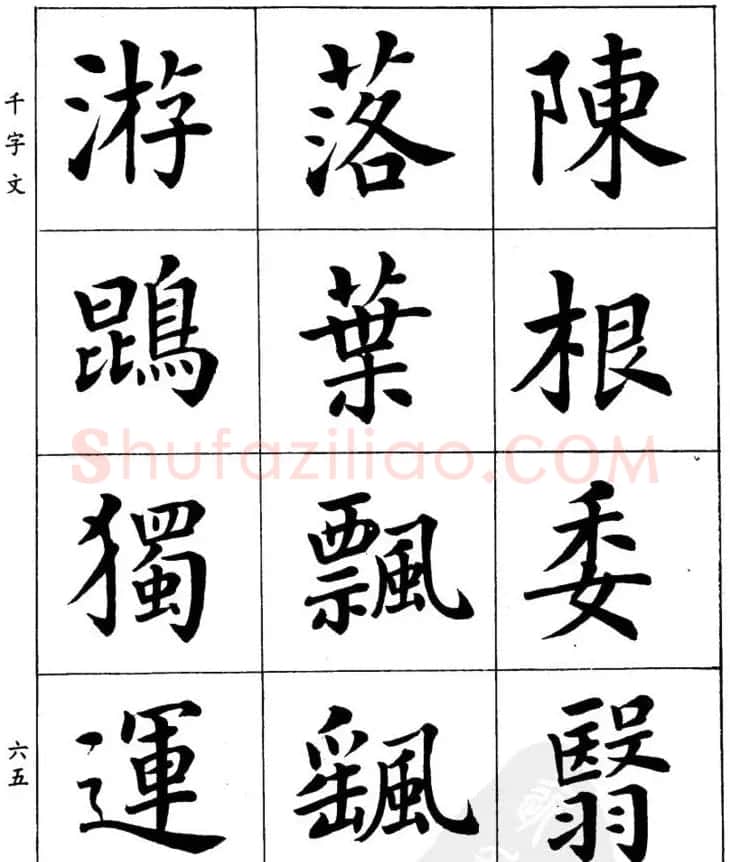 陳根委翳
落葉飄颻
游鵾獨運
千字文
六五
Shufaziliao.COM